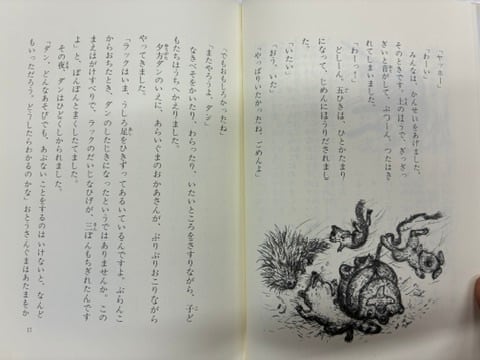 「ヤッホー」
「わーい」
みんなは、かんせいをあげました。
そのときです。上のほうで、ぎっぎっ
ぎいと音がして、ぷつーん、つたはき
れてしまいました。
「わーっ!」
どしーん。五ひきは、ひとかたまり
になって、じめんにほうりだされまし
た。
「いたい」
「おう、いた」
「やっぱりいたかったね、ごめんよ」
「でもおもしろかったね」
「またやろうよ、ダン」
なきべそをかいたり、わらったり、いたいところをさすりながら、子ど
もたちはうちへかえりました。
夕方ダンのいえに、あらいぐまのおかあさんが、ぷりぷりおこりながら
やってきました。
「ラックはいま、うしろ足をひきずってあるいているんですよ。ぶらんこ
からおちたとき、ダンのしたじきになったというではありませんか。この
まえはがけすべりで、ラックのだいじなひげが、三ぼんもちぎれたんです
よ」と、ぽんぽんとまくしたてました。
その夜、ダンはひどくしかられました。
「ダン、どんなあそびでも、あぶないことをするのはいけないと、なんど
もいっただろう。どうしたらわかるのかな」おとうさんぐまはあたまをか
17